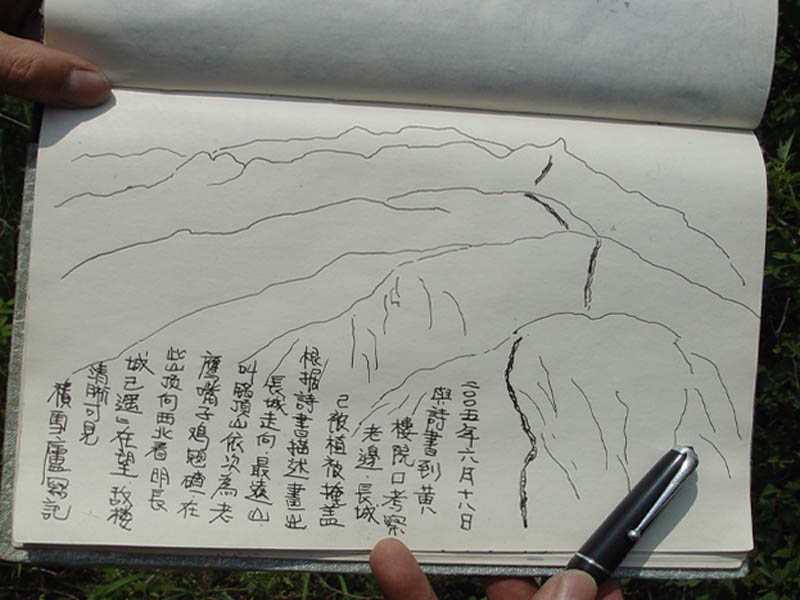 二00五年六月十八日
與詩書到黄八
楼院口考察
老邊·長城
己被植被掩盖
根据詩書描述畫出
長城走向·最遠山
叫頂山依次為老
鹰嘴子鸡在
此山顶向西北看明長
城已遥在望敌楼
清晰可見
積雪廬記